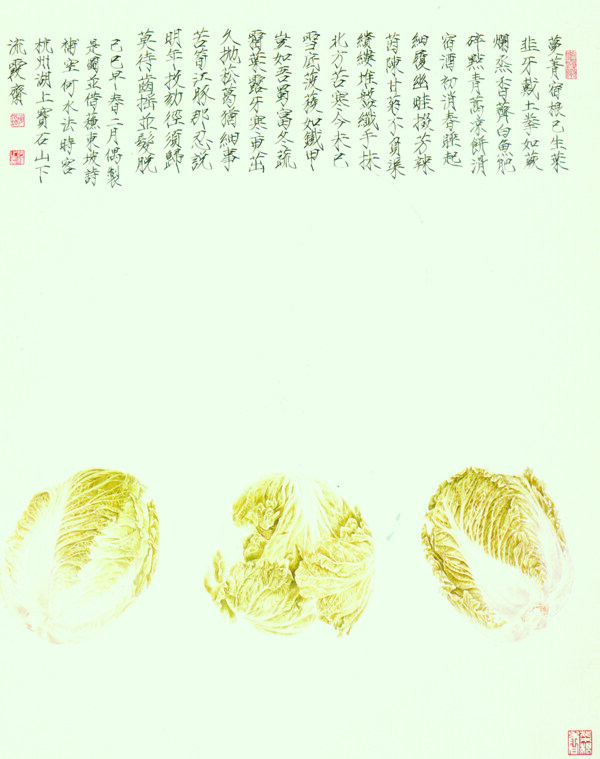 蔓菁宿根已生葉
韭牙戴土拳如蕨
爛烝香薺白魚肥
碎點青蒿涼餅滑
宿酒初消春睡起
細履幽畦掇芳辣
茵陳甘菊不負渠
縷堆盤纖手抹
北方苦寒今未已
雪底菠薐如鐵甲
豈如吾蜀富冬蔬
霜葉露牙寒更茁
久拋菘葛猶細事
苦筍江豚那忍說
明年投劾徑須歸
莫待齒搖並髮脫
己巳早春二月偶製
是圖並借蘇東坡詩
補空何水法時客
杭州湖上寶石山下
流霞齋